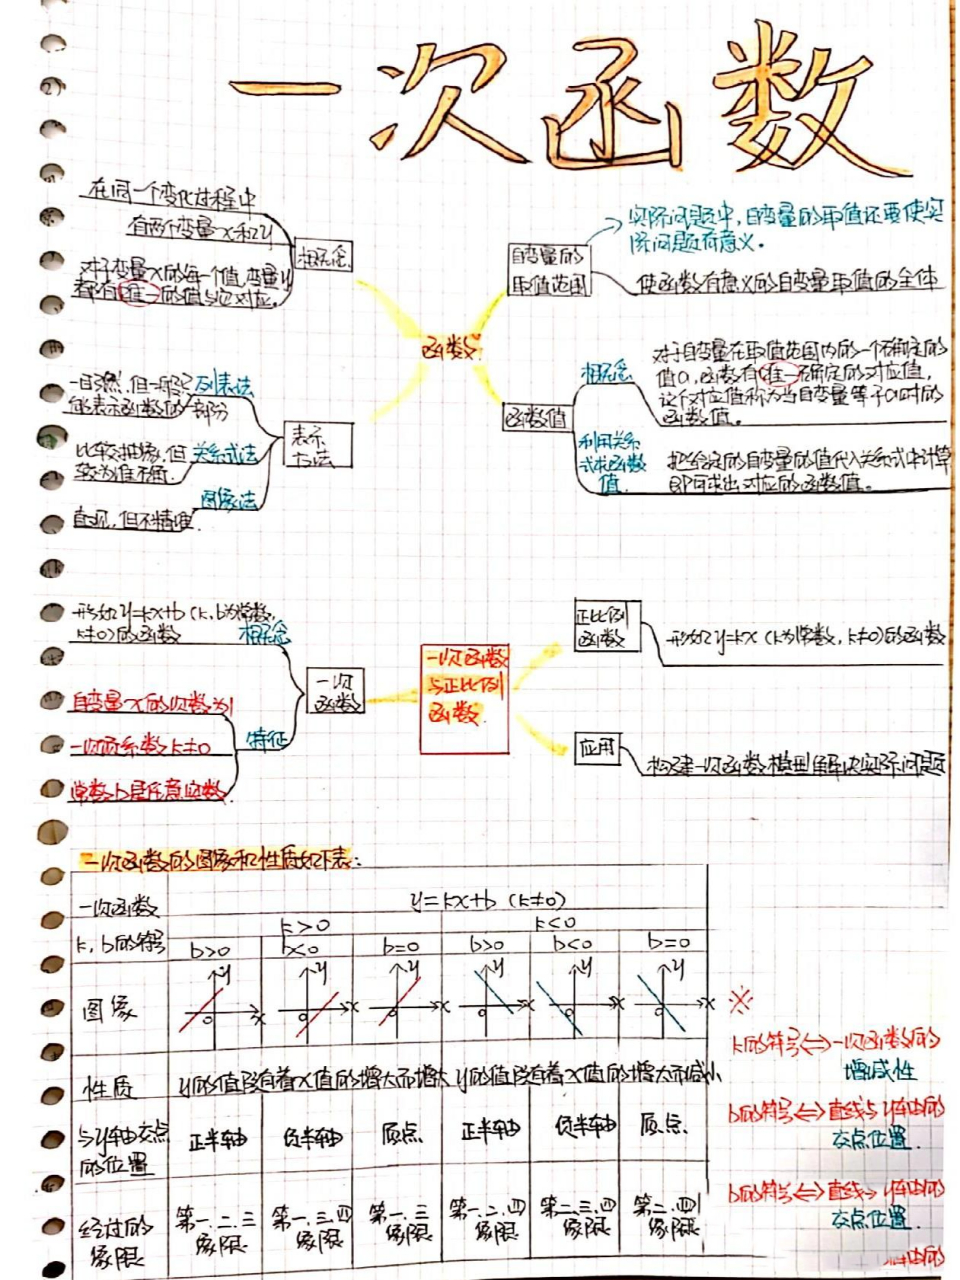 一次函数
在同一个变化过程中
有两个变量x和y
对于变量x的每一个值,变量y
都有唯一的值与它对应。
概念
函数
自变量的
取值范围
实际问题中,自变量的取值还要使实
际问题有意义。
使函数有意义的自变量取值的全体
函数值
概念
对于自变量在取值范围内的一个确定的
值a,函数有唯一确定的对应值,
这个对应值称为当自变量等于a时的
函数值。
利用关系
式求函数
值
把给定的自变量的值代入关系式中计算
即可求出对应的函数值。
表示
方法
列表法
一目了然,但一般只
能表示函数的一部分
关系式法
比较抽象,但
较为准确.
图像法
直观,但不精准.
一次函数
与正比例
函数.
一次
函数
概念
形如y=kx+b(k,b为常数,
k≠0)的函数
特征
自变量x的次数为1
一次项系数k≠0
常数b是任意实数
正比例
函数
形如y=kx(k为常数,k≠0)的函数
应用
构建一次函数模型解决实际问题
一次函数的图象和性质如下表:
一次函数 y=kx+b (k≠0)
k,b的符号 k>0 k<0
b>0 b<0 b=0 b>0 b<0 b=0
图像
y y y y y y
o o o o o o
x x x x x x
性质 y的值随着x值的增大而增大 y的值随着x值的增大而减小
与y轴交点
的位置
正半轴 负半轴 原点 正半轴 负半轴 原点
经过的
象限
第一.二.三
象限
第一.三.四
象限
第一.三
象限
第一.二.四
象限
第二.三.四
象限
第二.四
象限
※
k的符号⇔一次函数的
增减性
b的符号⇔直线与y轴的
交点位置.
b的符号⇔直线与y轴的
交点位置.
y轴的